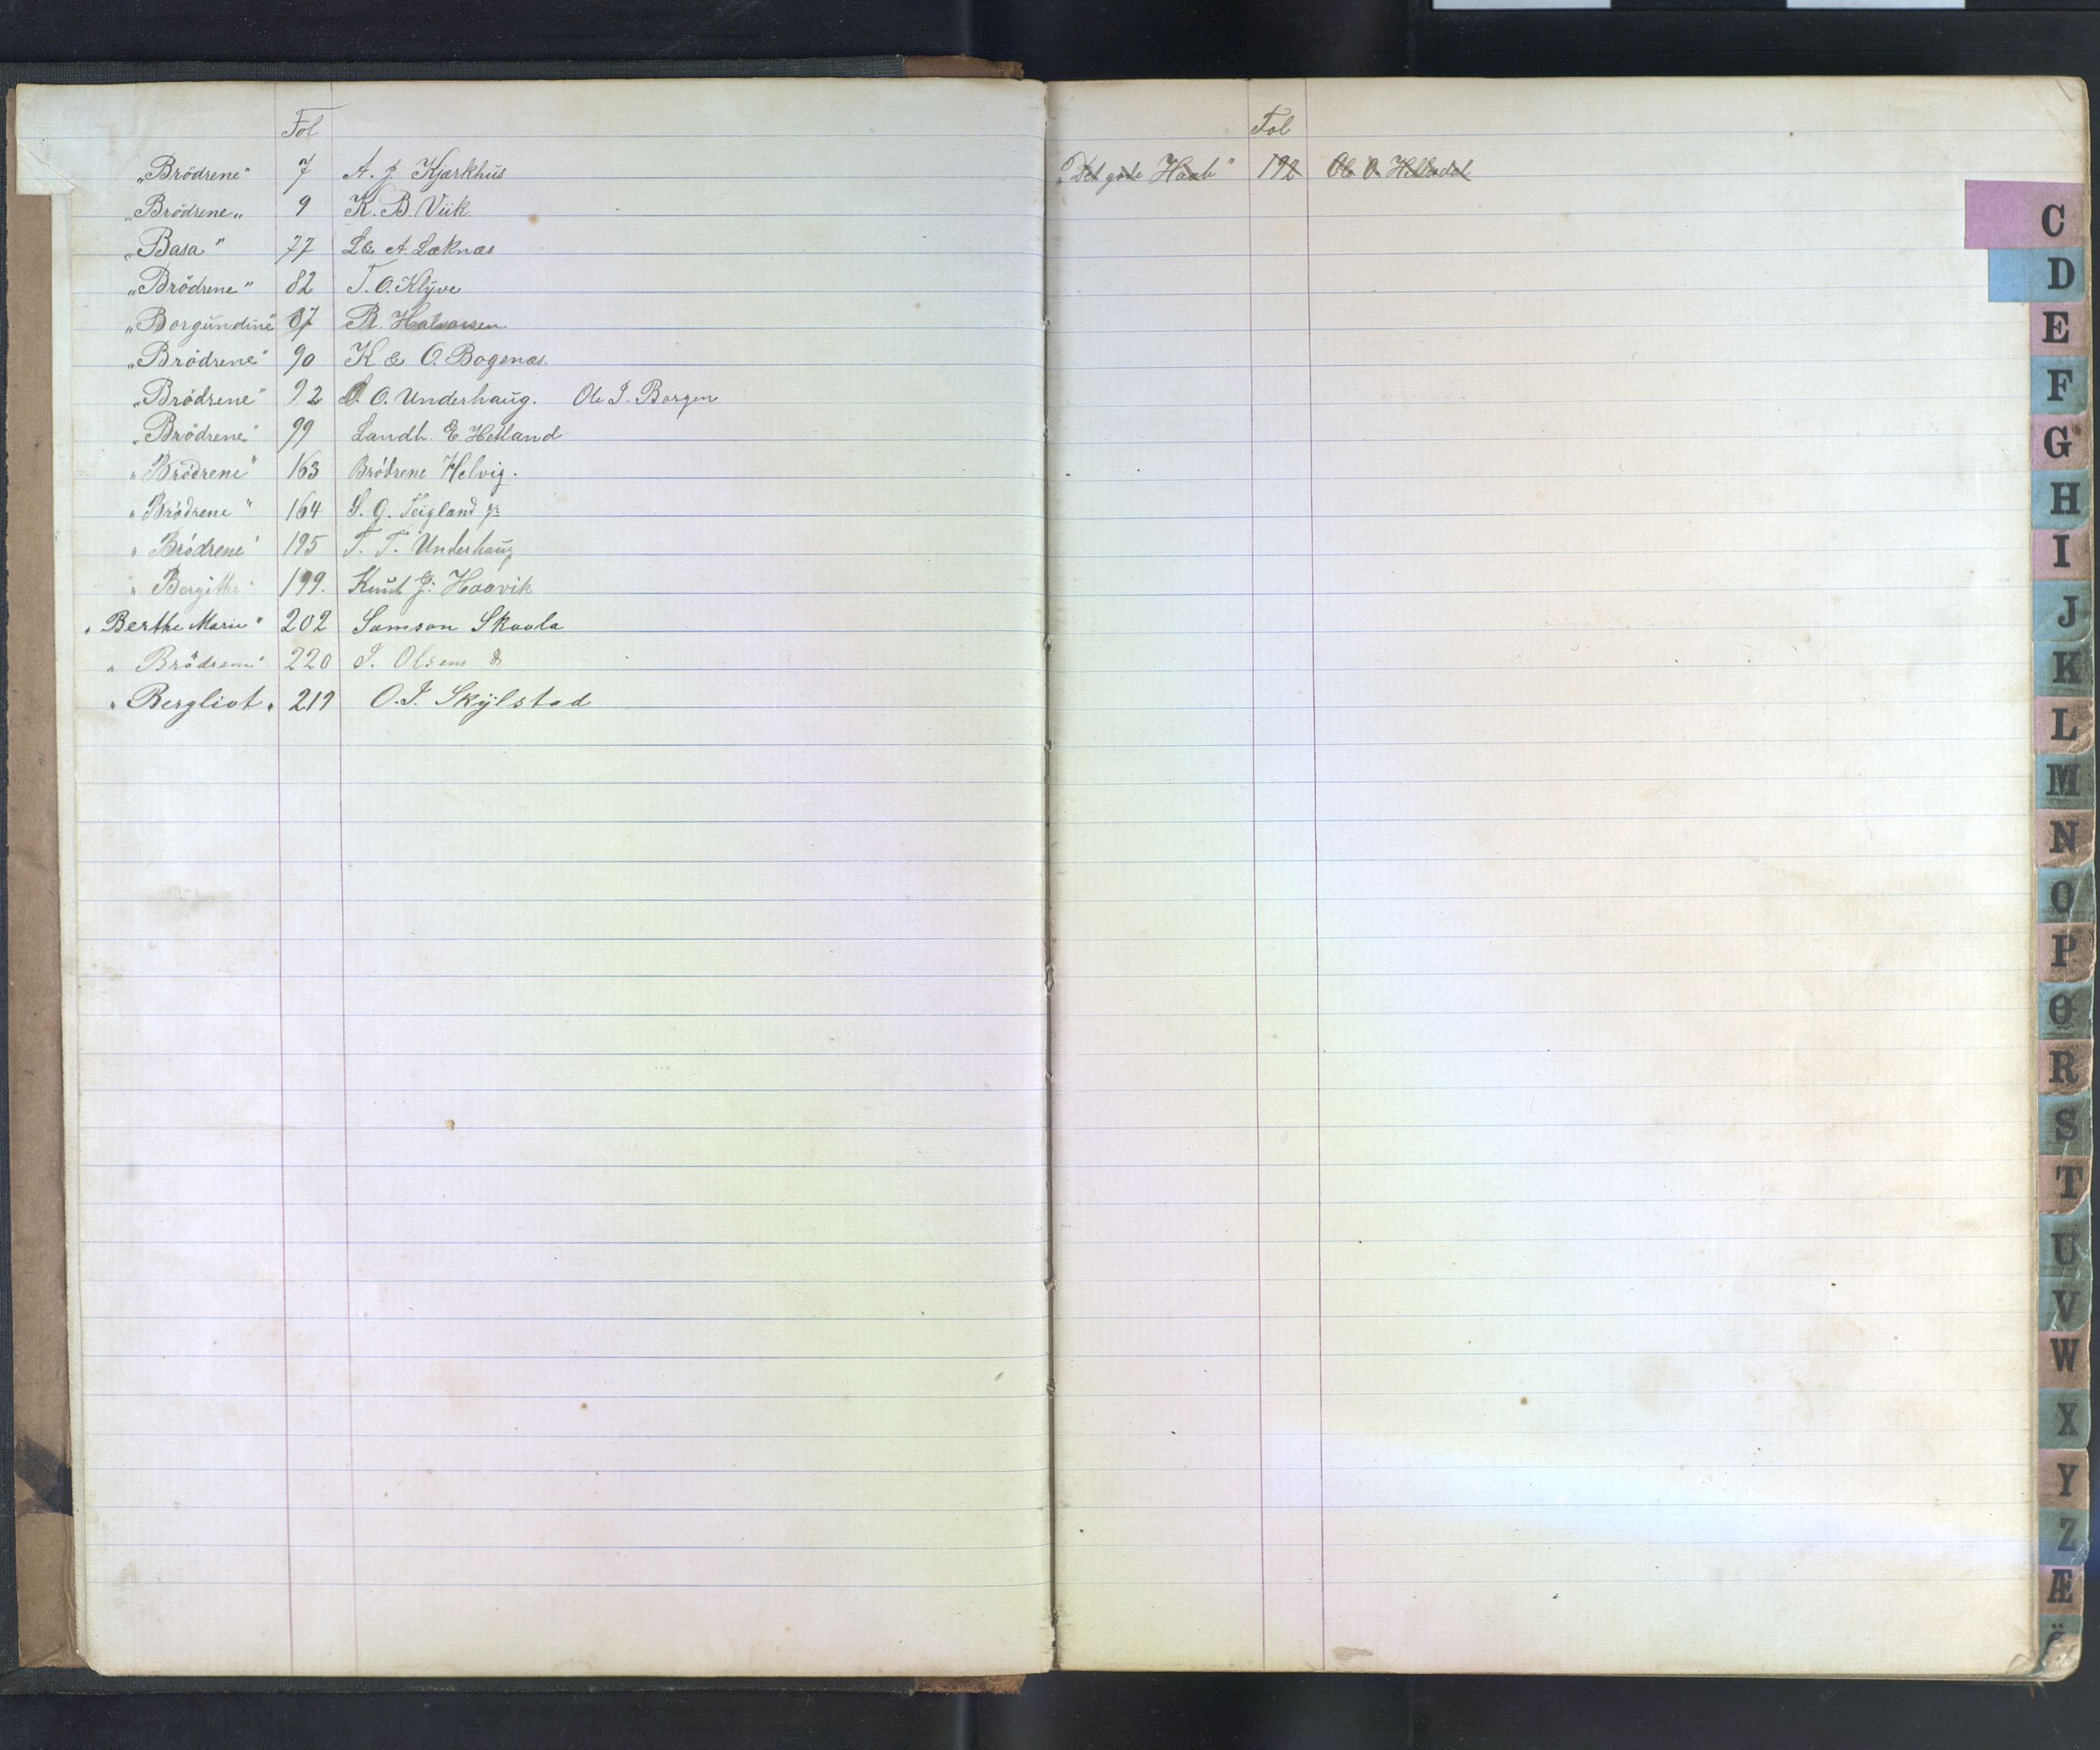 Fol
„Brödrene" 7 A. J. Kjærkhus
„Brödrene„ 9 K. B. Viik.
„Basa" 77 L & A. Læknæs
„Brödrene" 82 T. O. Klÿve
„Borgundine" 87 R. Halvorsen
„Brödrene" 90 K & O. Bogenæs.
„Brödrene" 92 O. Underhaug. Ole J. Borgen
„Brödrene" 99 Landh. E. Hetland
„Brödrene" 163 Brödrene Helvig.
„Brödrene" 164 S. G. Teigland jr
„Brödrene" 195 T. T. Underhaug
„Bergithe" 199. Knut J. Haavik
„Berthe Marie" 202 Samson Skaala
„Brödrene" 220 J. Olsens
„Bergliot„ 219 O. J. Skÿlstad
Fol
„Det gode Haab" 192 Ole O.
C
D
E
F
G
H
I
J
K
L
M
N
O
P
Q
R
S
T
U
V
W
X
Y
Z
Æ
Ö